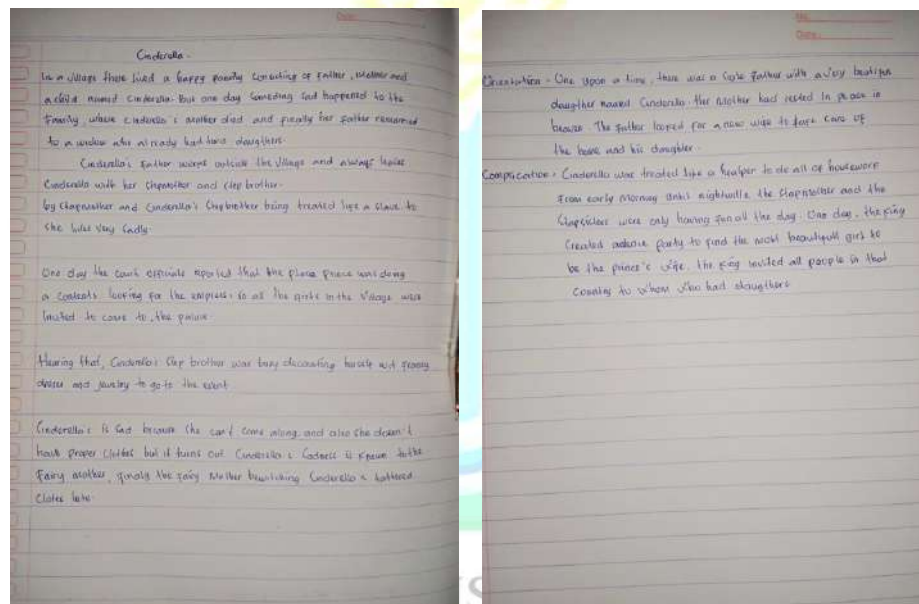 Date:
Cinderella.
In a village there lived a happy family consisting of father, Mother and
a child named Cinderella. But one day someding sad happened to the
Family, where Cinderella's mother died and finally her father remarried
to a widow who already had two daughters.
Cinderella's father works outside the village and always leaves
Cinderella with her stepmother and step brother.
by stepmother and Cinderella's Stepbrother being treated like a slave. to
she lives very sadly.
One day the court officials reported that the prince was doing
a contents looking for the empress, so all the girls in the village were
Invited to come to the palace.
Hearing that, Cinderella's step brother was busy decorating herself wit
dresses and jewelry to go to the event
Cinderella's is sad because she can't come along, and also she doesn't
have proper clothes but it turns out Cinderella's Sadness is known to the
Fairy mother, finaly the fairy Mother bewitching Cinderella's tattered
Clotes
No.
Date:
Orientation - One upon a time, there was a father with a very beautiful
daugther named Cinderella. Her mother had rested In peace in
heaven. The father looked for a new wife to take care of
the home and his daughter.
Complication - Cinderella was treated like a healper to do all of housework
From early morning until night while the stepmother and the
Stepsisters were only having fun all the day. One day, the king
Created party to find the most beautifull girl to
be the prince's wife. the king invited all people in that
Country to whom who had daugthers